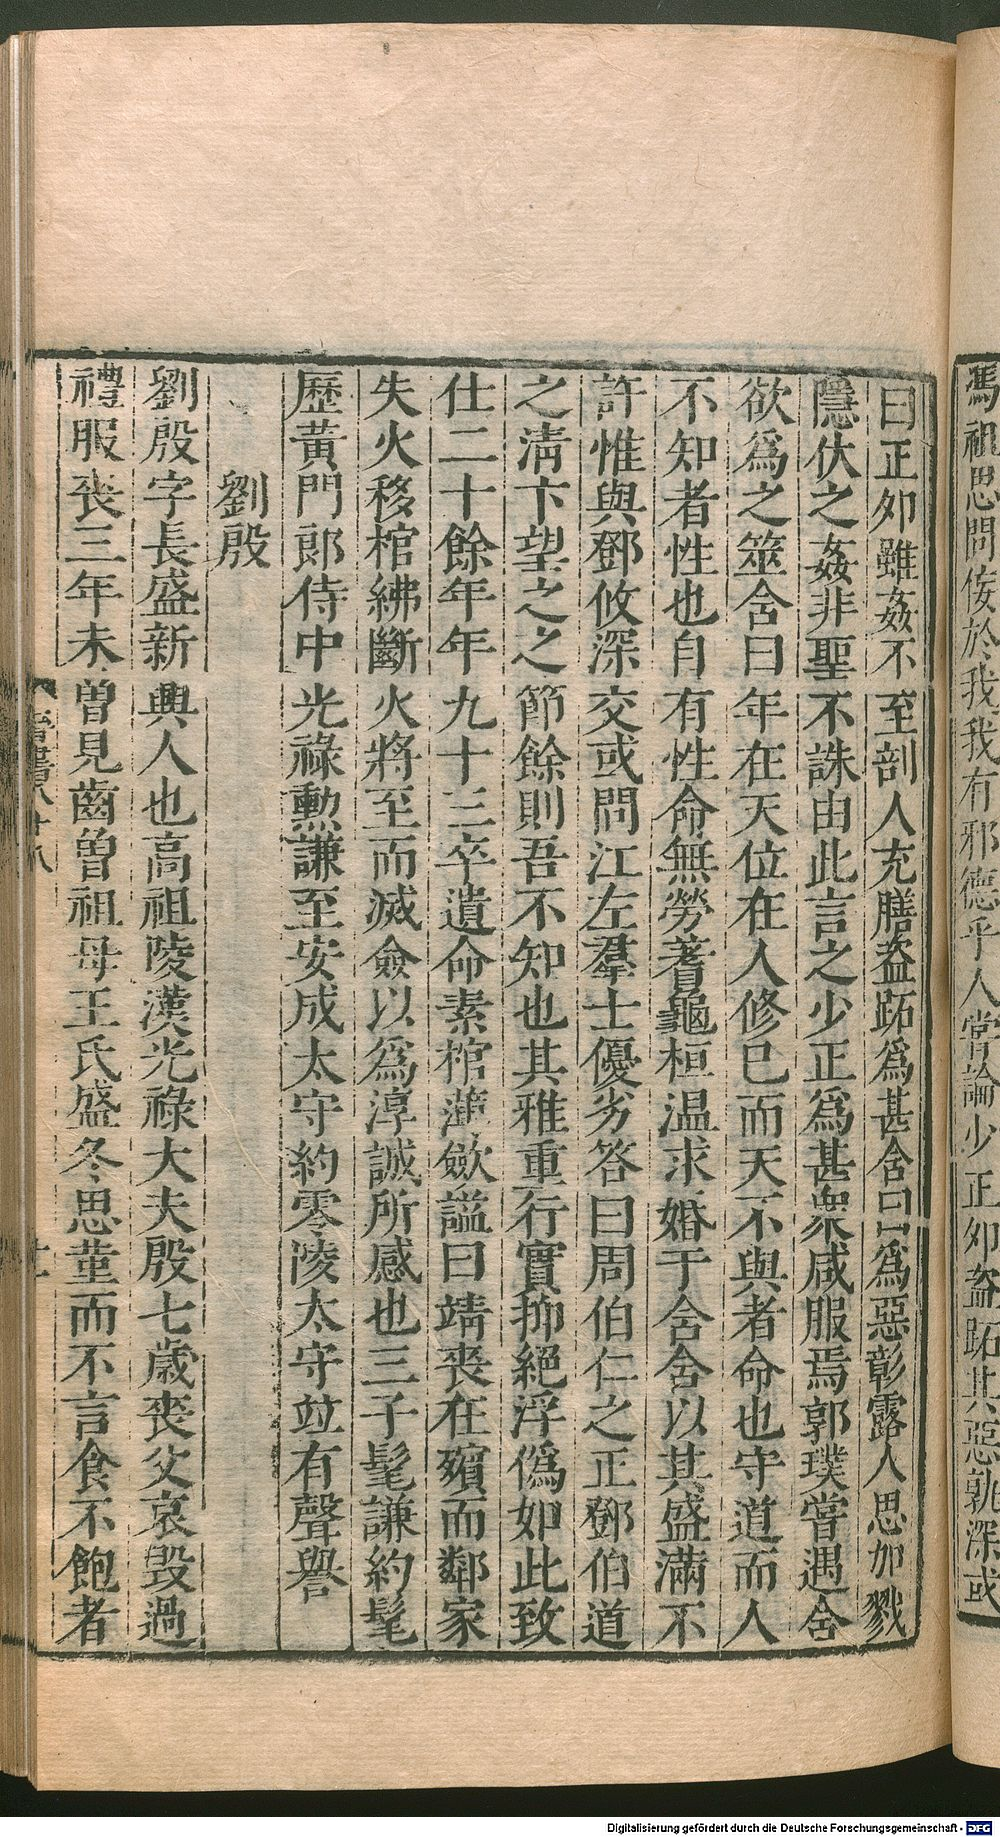 馮祖思問侫於我我有邪德乎人嘗論少正夘盗跖其惡孰深或
曰正夘雖姦不至剖人充膳盗跖爲甚含曰爲惡彰露人思加戮
隱伏之姦非聖不誅由此言之少正爲甚衆咸服焉郭璞嘗遇含
欲爲之筮含曰年在天位在人修巳而天不與者命也守道而人
不知者性也自有性命無勞蓍龜桓温求婚于含含以其盛滿不
許惟與鄧攸深交或問江左羣士優劣答曰周伯仁之正鄧伯道
之淸卞望之之節餘則吾不知也其雅重行實抑絕浮僞如此致
仕二十餘年年九十三卒遺命素棺薄斂謚曰靖喪在殯而鄰家
失火移棺紼斷火將至而滅僉以爲淳誠所感也三子髦謙約髦
歷黃門郎侍中光祿勳謙至安成太守約零陵太守竝有聲譽
劉殷
劉殷字長盛新興人也高祖陵漢光祿大夫殷七歲喪父哀毀過
禮服喪三年未曽見齒曽祖母王氏盛冬思堇而不言食不飽者
晉書八十八
十一
Digitalisierung gefördert durch die Deutsche Forschungsgemeinschaft - DFG